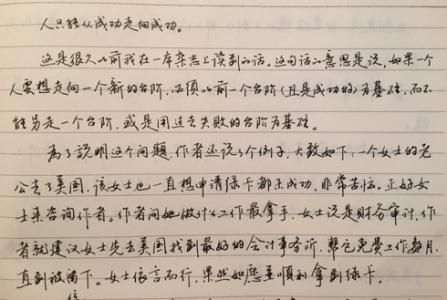 人只能从成功走向成功。
这是很久以前我在一本杂志上读到的话。这句话的意思是说，如果一个
人要想走向一个新的台阶，必须以前一个台阶（且是成功的）为基础，而不
能另走一个台阶，或是用过去失败的台阶为基础。
为了说明这个问题，作者还说了个例子，大致如下，一个女士的老
公去了美国，该女士也一直想申请绿卡都未成功，非常苦恼。正好女
士来咨询作者。作者问她做什么工作最拿手，女士说是财务审计，作
者就建议女士先去美国找到最好的会计事务所，帮它免费工作每月，
直到被留下。女士依言而行，果然如愿并顺利拿到绿卡。